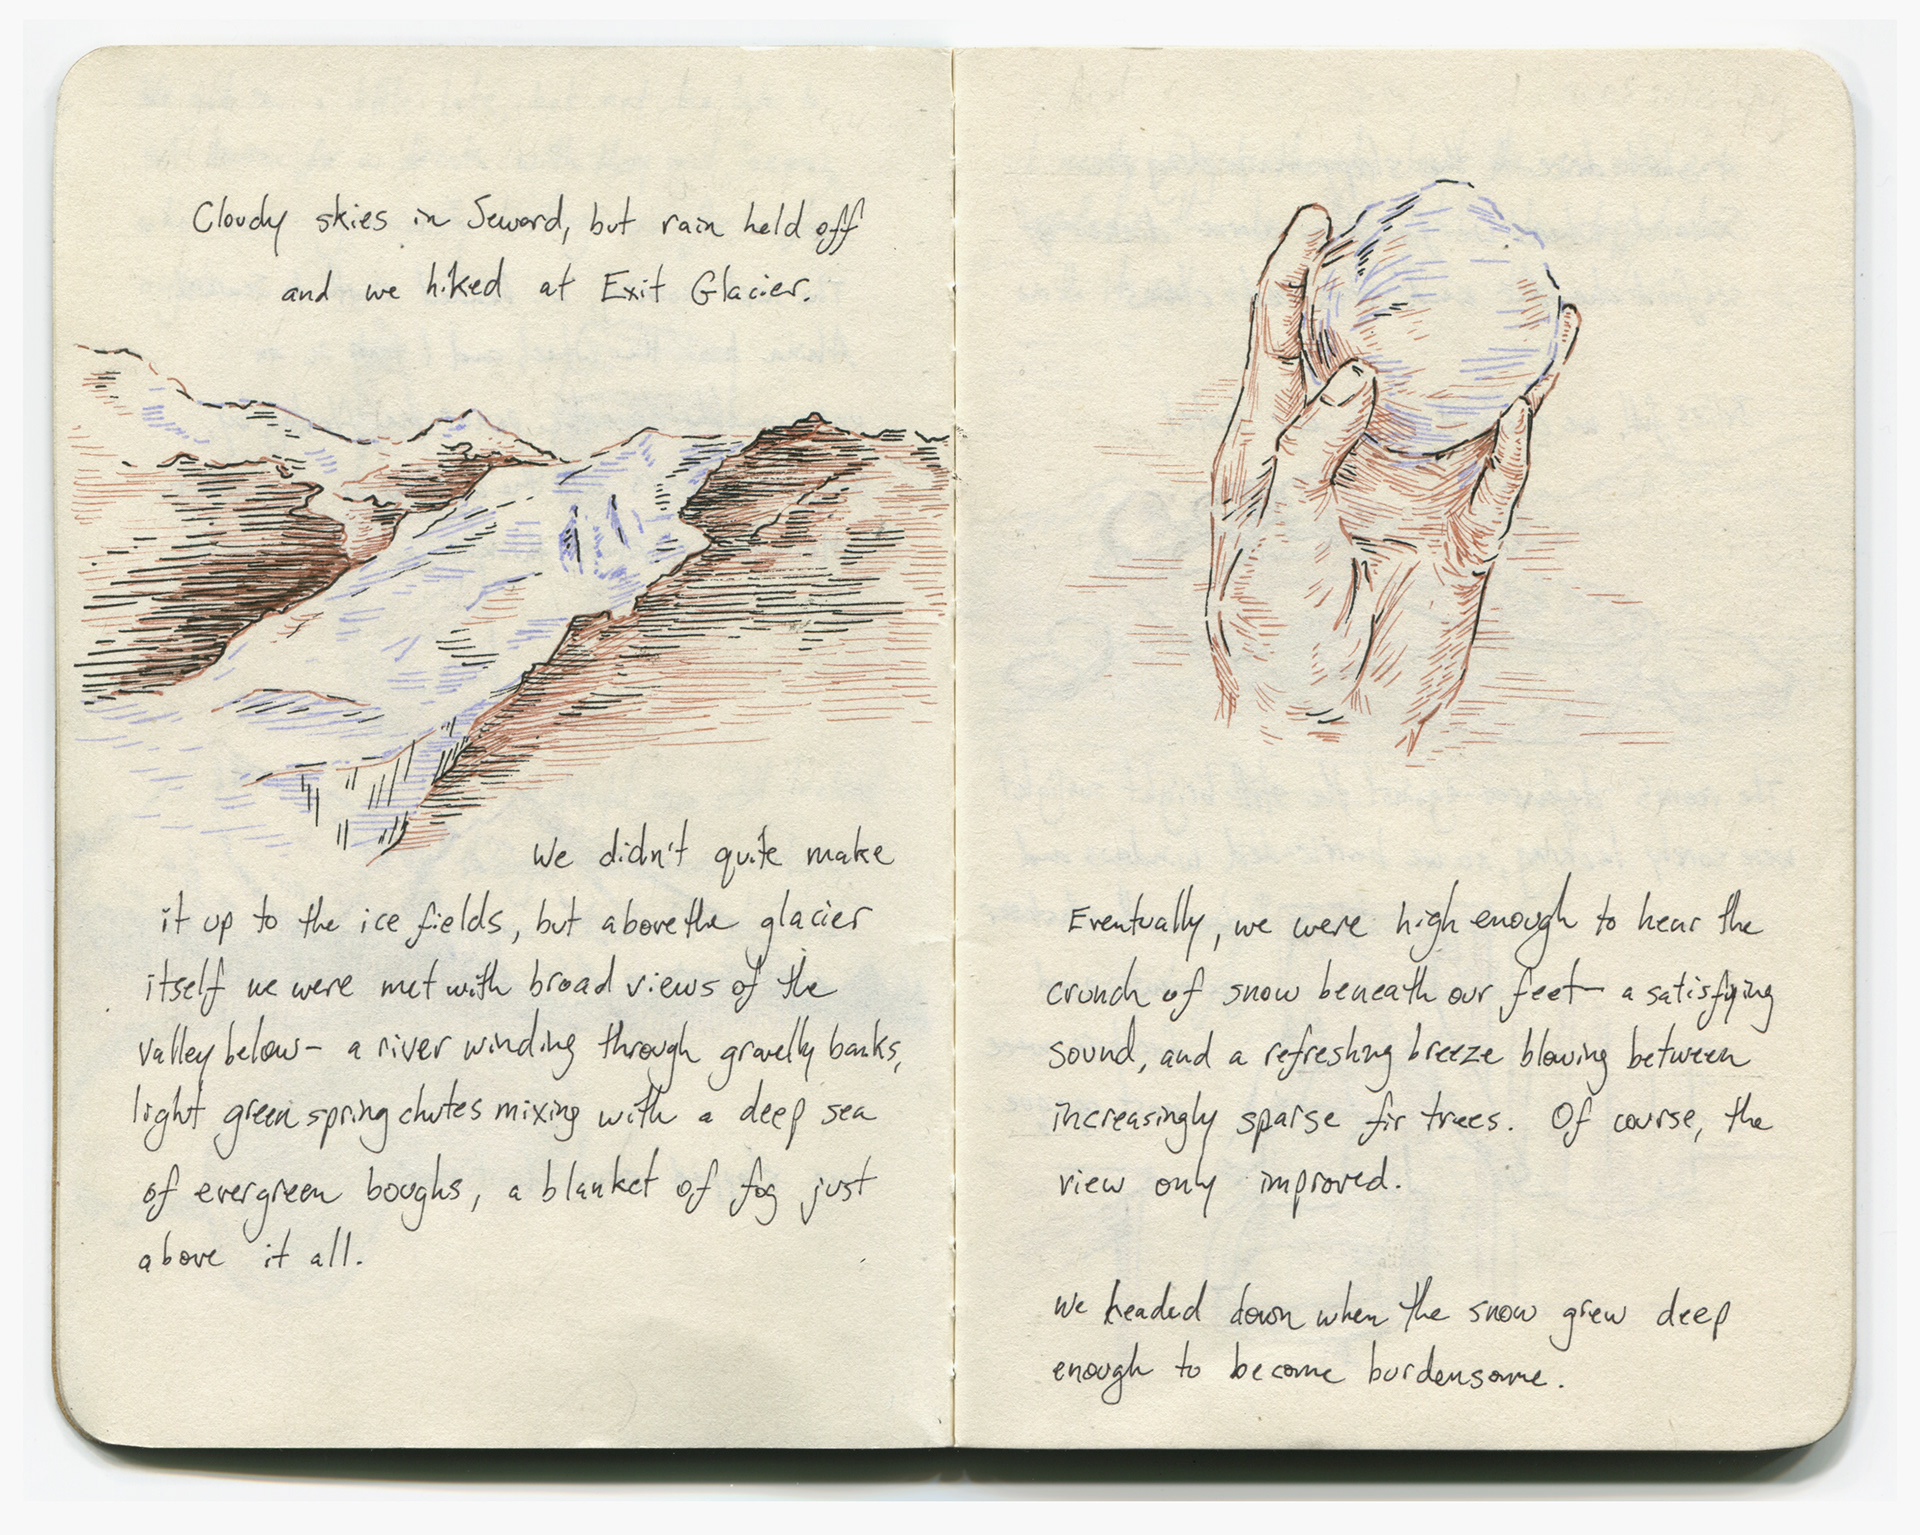 Cloudy skies in Seward, but rain held off
and we hiked at Exit Glacier.
We didn't quite make
it up to the ice fields, but above the glacier
itself we were met with broad views of the
valley below— a river winding through gravelly banks,
light green spring chutes mixing with a deep sea
of evergreen boughs, a blanket of fog just
above it all.
Eventually, we were high enough to hear the
crunch of snow beneath our feet— a satisfying
sound, and a refreshing breeze blowing between
increasingly sparse fir trees. Of course, the
view only improved.
We headed down when the snow grew deep
enough to become burdensome.